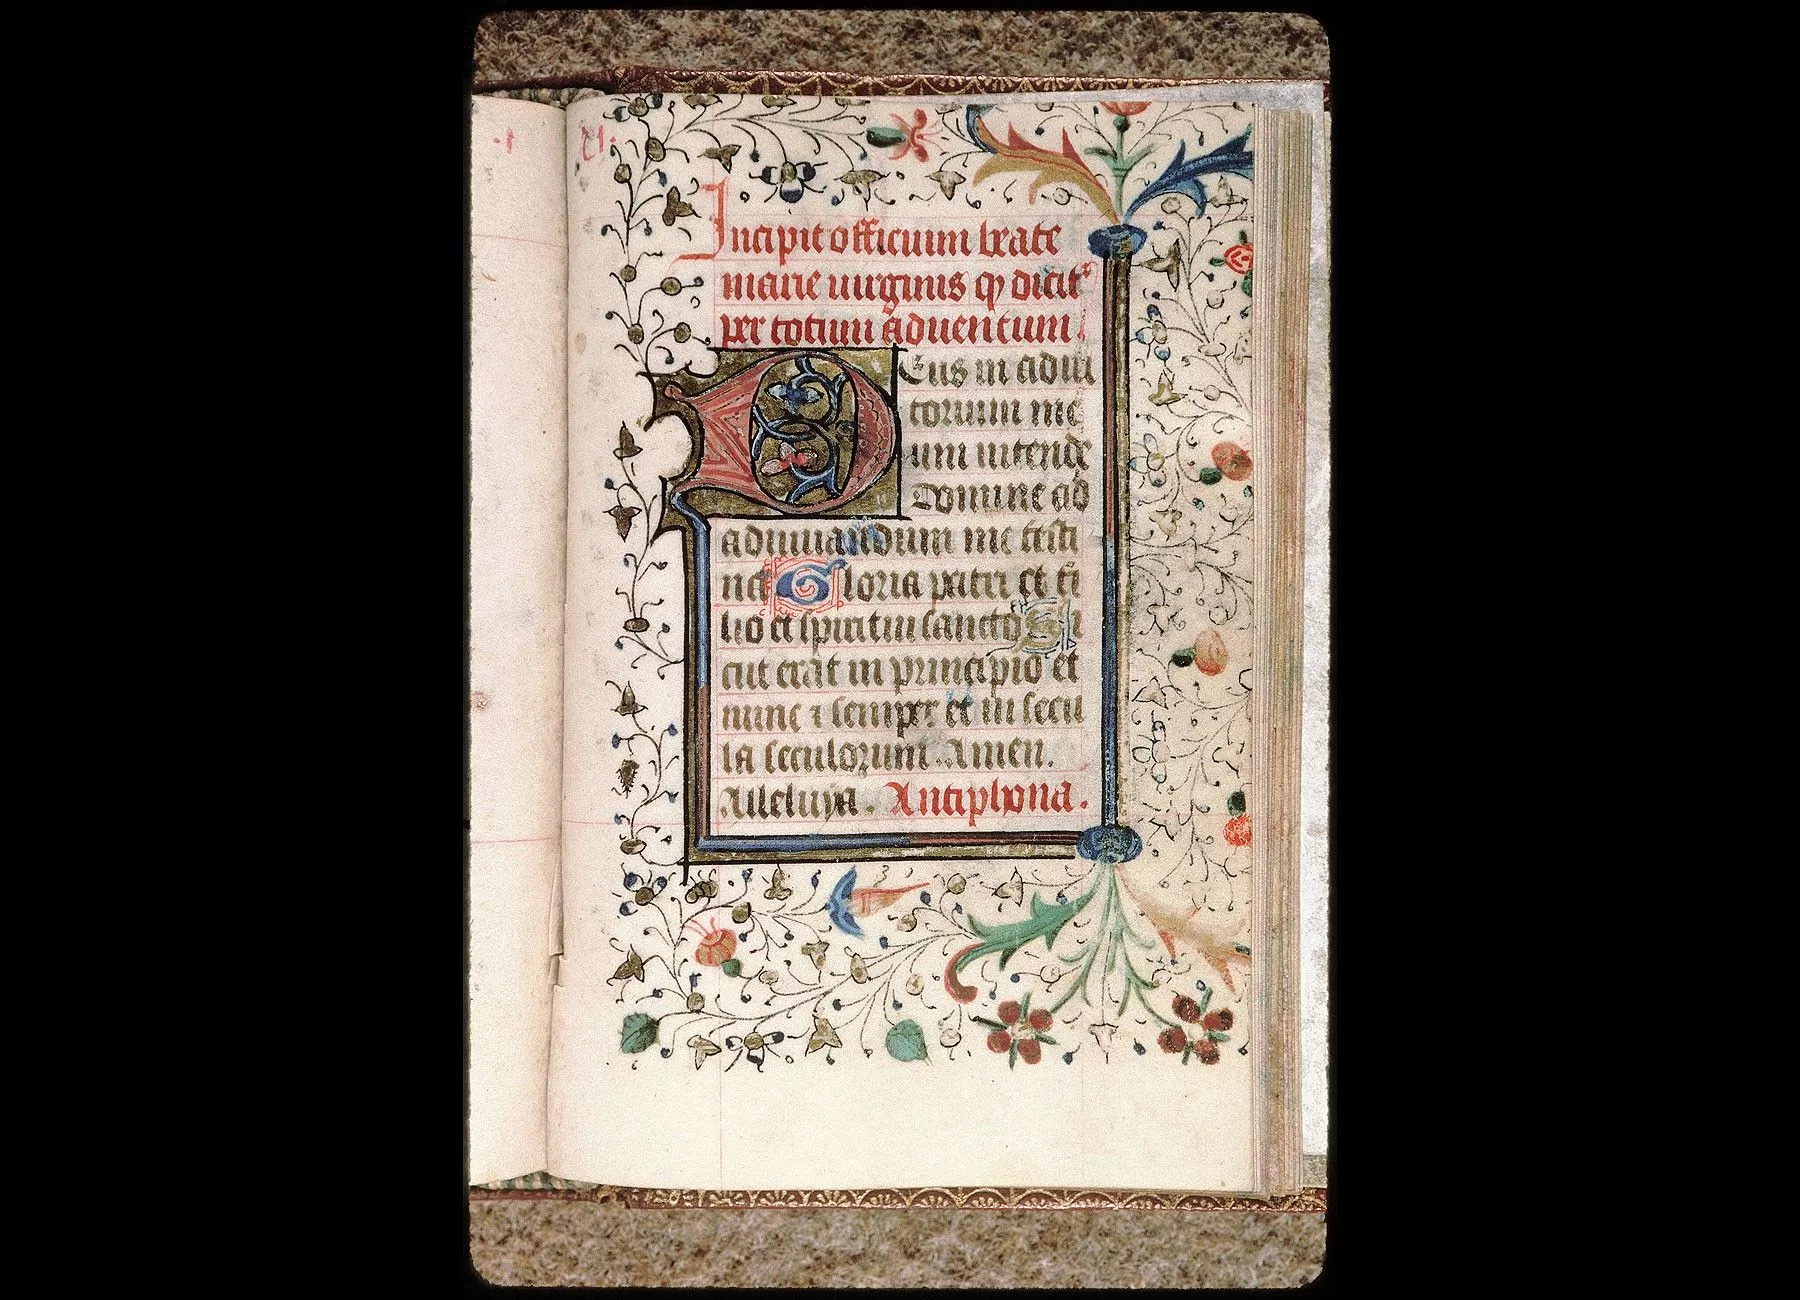 Incipit officium beate
marie uirginis qͥ dicitᷣ
per totum aduentum.
Deus in adiu
torium me
um intende
Domine ad
adiuuandum me festi
na Gloria patri et fi
lio et spiritui sancto Si
cut erat in principio et
nunc ⁊ semper et in secu
la seculorum. Amen.
Alleluya. Antiphona.